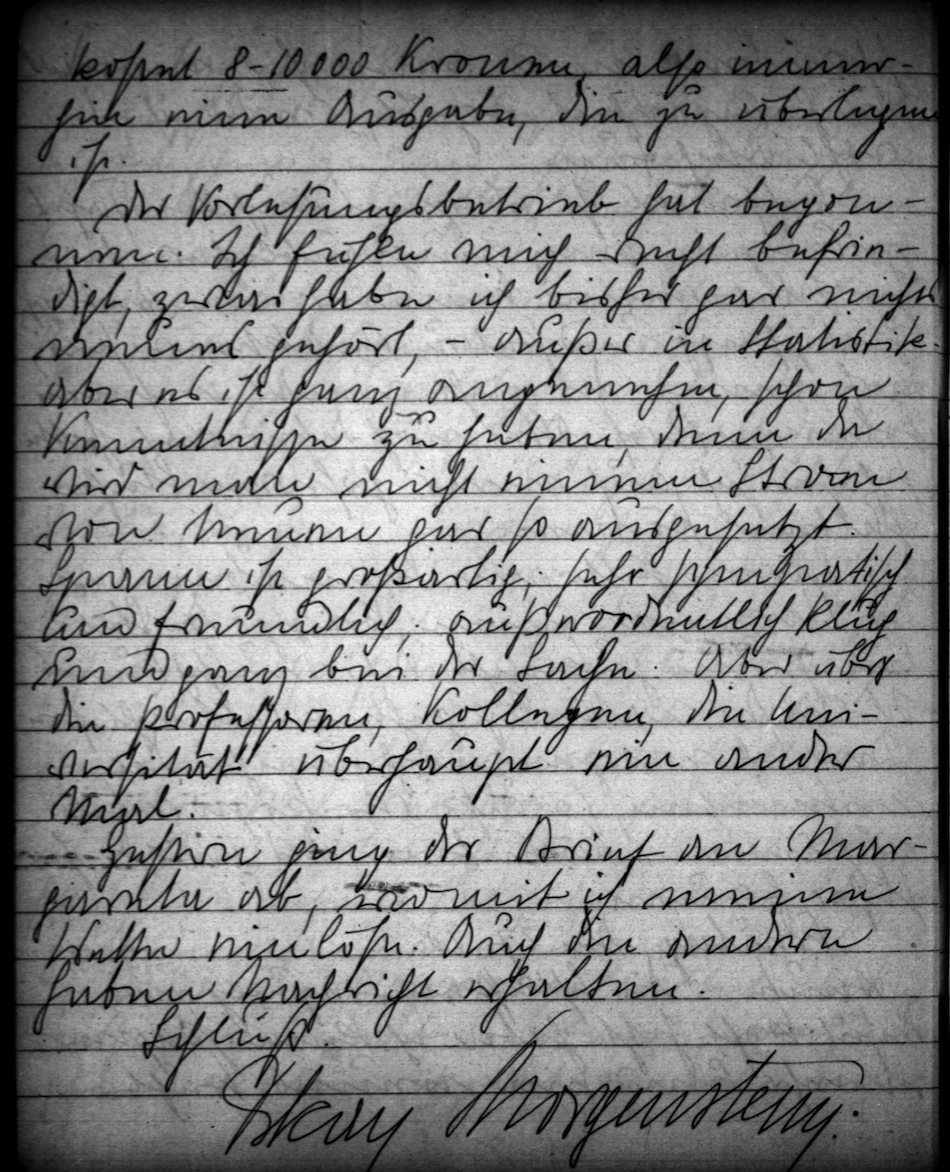 kostet 8-10000 Kronen, also immer-
hin eine Ausgabe, die zu überlegen
ist.
Der Vorlesungsbetrieb hat begon-
nen. Ich fühle mich recht befrie-
digt, zwar habe ich bisher gar nichts
neues gehört, - außer in Statistik.
aber es ist ganz angenehm, schon
Kenntnisse zu haben, denn da
wird man nicht einem Strom
von Neuem gar so ausgesetzt.
Spann ist großartig; sehr sympatisch
und freundlich, außerordentlich klug
und ganz bei der Sache. Aber über
die Professoren, Kollegen, die Uni-
versität überhaupt ein ander
Mal.
Gestern ging der Brief an Mar-
gareta ab, womit ich meine
Wette einlöste. Auch die andern
haben Nachricht erhalten.
Schluß.
Oskar Morgenstern.